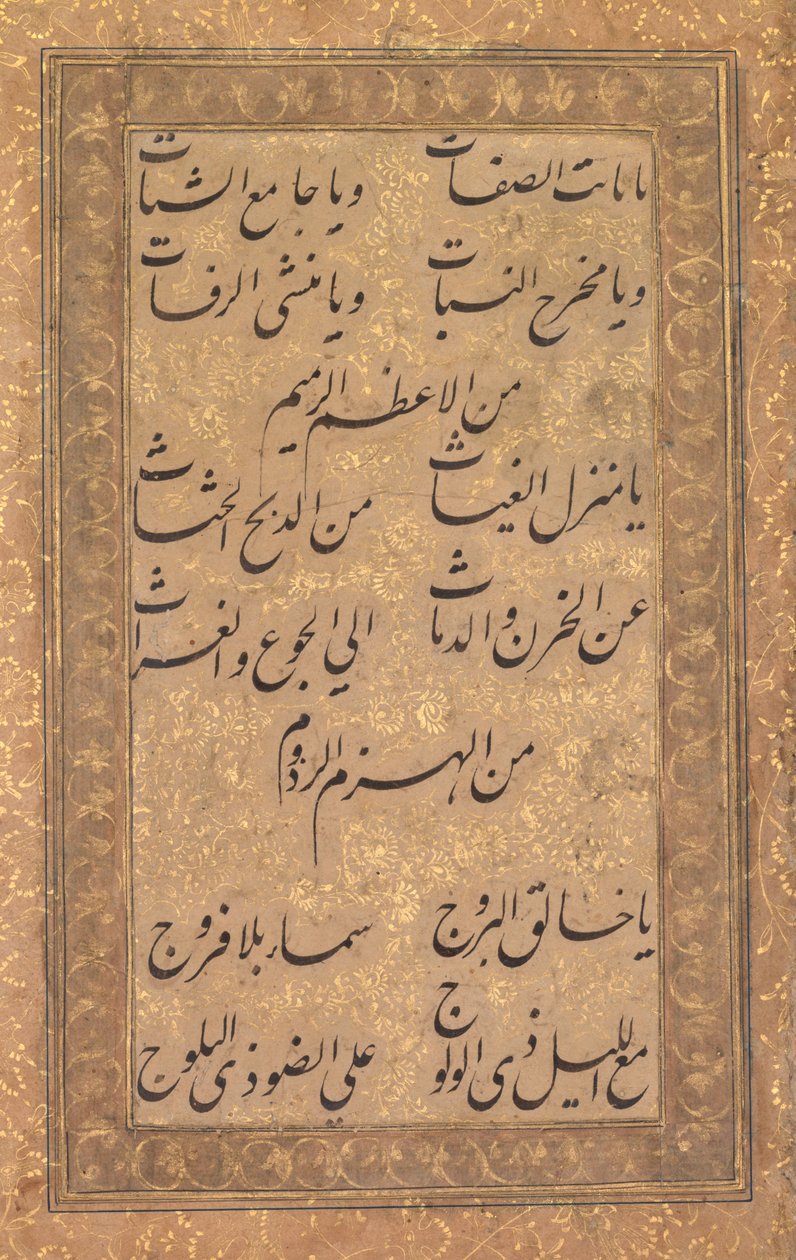 یا ثابت الصفات ویا جامع الشتات
ویا مخرج النبات ویا منشی الرفات
من الاعظم الرمیم
یا منزل الغیاث من الدبح الحثاث
عن الخرن والدماث الی الجوع والغراث
من الهزم الرذوم
یا خالق البروج سماء بلا فروج
مع اللیل ذی الولوج علی الضوذی البلوج